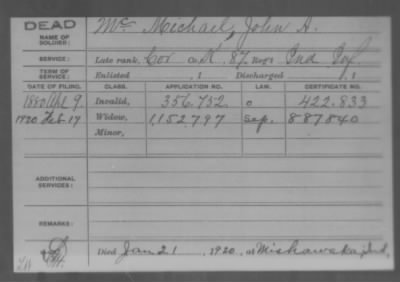 DEAD
NAME OF SOLDIER: Mc Michael, John A.
SERVICE: Late rank, Cor Co. K, 87, Reg't Ind Inf.
TERM OF SERVICE: Enlisted , 1 Discharged , 1
DATE OF FILING. CLASS. APPLICATION NO. LAW. CERTIFICATE NO.
1880 Apl 9. Invalid, 356.752. o 422.833
1920 Feb 17 Widow, 1,152,797 Sep. 887840
Minor,
ADDITIONAL SERVICES:
REMARKS:
Died Jan 21, 1920, at Mishawaka, Ind,